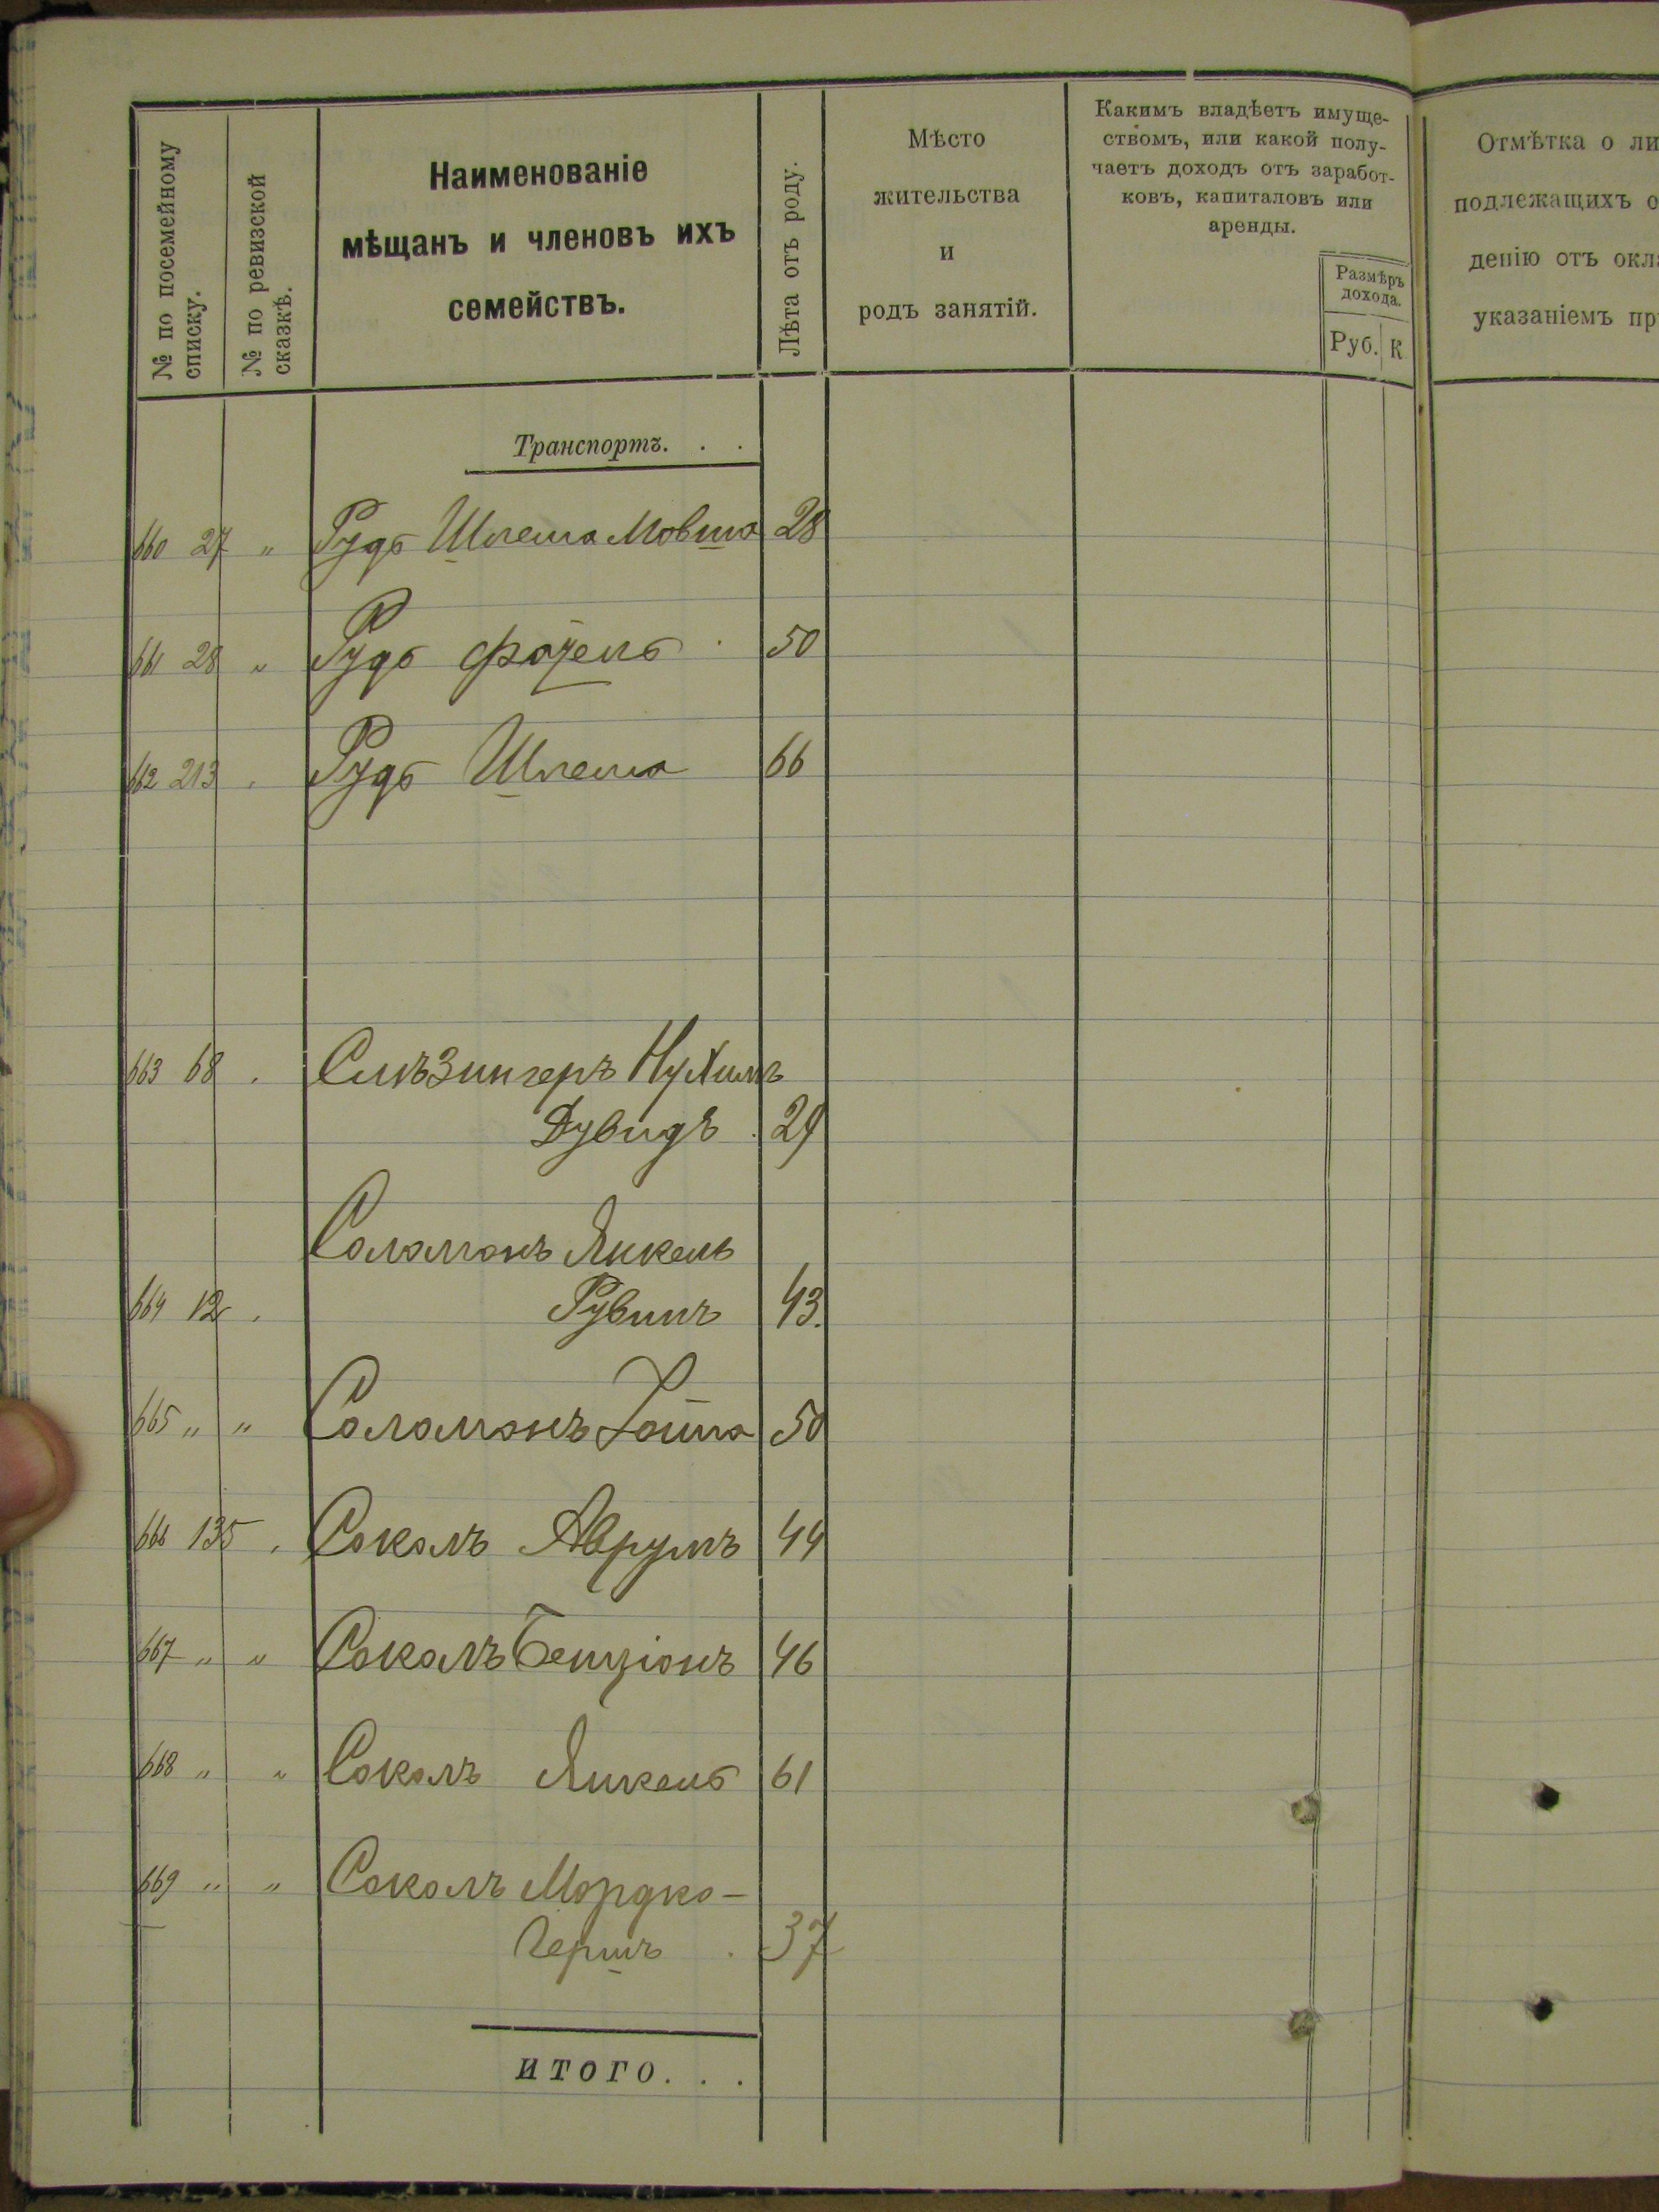 № по посемейному
списку.
№ по ревизской
сказкѣ.
Наименованіе
мѣщанъ и членовъ ихъ
семействъ.
Лѣта отъ роду.
Мѣсто
жительства
и
родъ занятій.
Какимъ владѣетъ имуще-
ствомъ, или какой полу-
чаетъ доходъ отъ заработ-
ковъ, капиталовъ или
аренды.
Размѣръ
дохода.
Руб. К
Отмѣтка о ли
подлежащихъ о
денію отъ окла
указаніемъ пр
Транспортъ. . .
660 27 " Рудь Шлема Мовша 28
661 28 " Рудь Фроель 50
662 213 Рудь Шлема 66
663 68 . Сикъзингеръ Нухимъ
Дувидъ . 29
Соломонъ Янкель
664 12 . Рувинъ 43.
665 " " Соломонъ Хаима 50
666 135 . Соколъ Аврумъ 44
667 " " Соколъ Бенціонъ 46
668 " " Соколъ Янкель 61
669 " " Соколъ Мордко-
Гершъ . 37
ИТОГО. . .